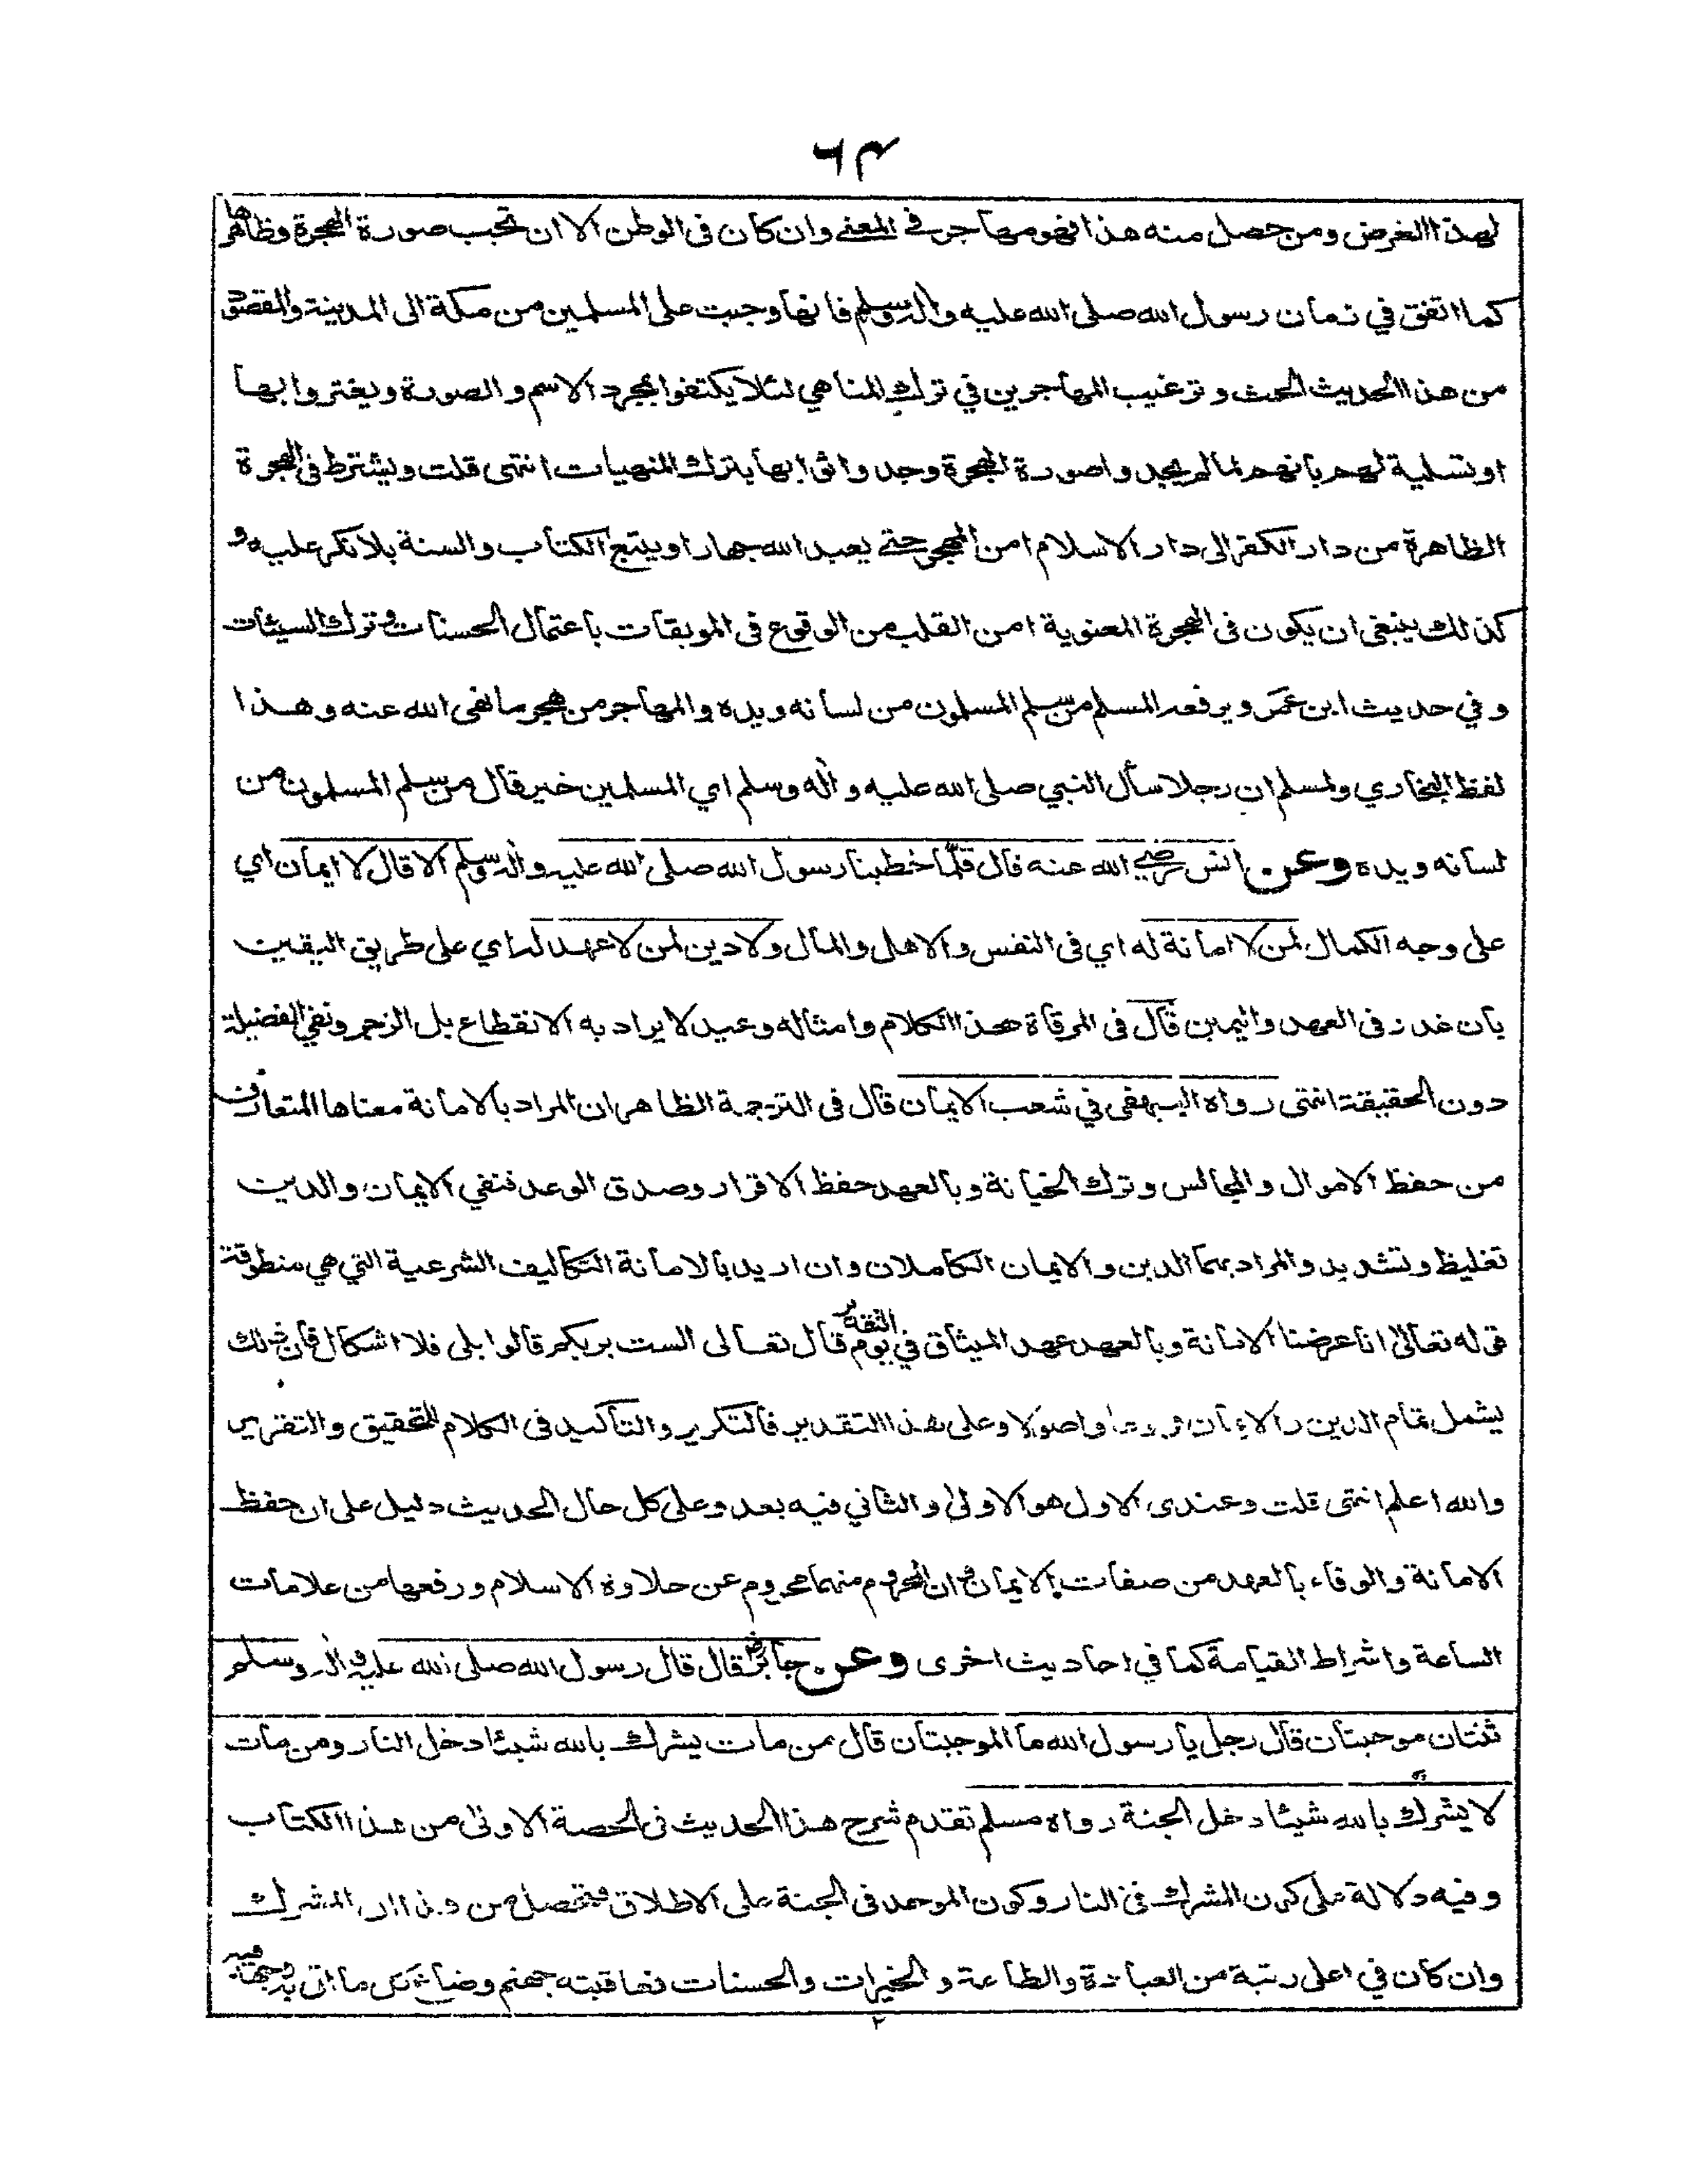 ٦٤
لهذا الغرض ومن حصل منه هذا فهو مهاجر في المعنى وان كان فى الوطن الا ان تجب صورة الهجرة وظاهرها
كما اتفق في زمان رسول الله صلى الله عليه واله وسلم فانها وجبت على المسلمين من مكة الى المدينة والمقصود
من هذا الحديث الحث وترغيب المهاجرين في ترك المناهي لئلا يكتفوا بمجرد الاسم والصورة ويغتروا بها
او تسلية لهم بانهم لما لم يجدوا صورة الهجرة وجدوا ثوابها بترك المنهيات انتهى قلت ويشترط فى الهجرة
الظاهرة من دار الكفر الى دار الاسلام امن المهجر حتى يعبد الله جهارا ويتبع الكتاب والسنة بلا نكر عليه و
كذلك ينبغى ان يكون فى الهجرة المعنوية امن القلب من الوقوع فى الموبقات باعتمال الحسنات وترك السيئات
وفي حديث ابن عمر ويرفعه المسلم من سلم المسلمون من لسانه ويده والمهاجر من هجر ما نهى الله عنه وهذا
لفظ البخاري ولمسلم ان رجلا سأل النبي صلى الله عليه واله وسلم اي المسلمين خير قال من سلم المسلمون من
لسانه ويده وعن انس رضي الله عنه قال قلما خطبنا رسول الله صلى الله عليه واله وسلم الا قال لا ايمان اي
على وجه الكمال لمن لا امانة له اي فى النفس والاهل والمال ولا دين لمن لا عهد له اي على طريق اليقين
بان غدر فى العهد واليمين قال فى المرقاة هذا الكلام وامثاله وعيد لا يراد به الانقطاع بل الزجر ونفي الفضيلة
دون الحقيقة انتهى رواه البيهقى في شعب الايمان قال فى الترجمة الظاهر ان المراد بالامانة معناها المتعارف
من حفظ الاموال والمجالس وترك الخيانة وبالعهد حفظ الاقرار وصدق الوعد فنفي الايمان والدين
تغليظ وتشديد والمراد بهما الدين والايمان الكاملان وان اريد بالامانة التكاليف الشرعية التي هي منطوقة
قوله تعالى انا عرضنا الامانة وبالعهد عهد الميثاق في يوم قال تعالى الست بربكم قالوا بلى فلا اشكال فان ذلك
يشمل تمام الدين واصولا وعلى هذا التقدير فالتكرير والتأكيد فى الكلام للتحقيق والتقرير
والله اعلم انتهى قلت وعندى الاول هو الاولى والثاني فيه بعد وعلى كل حال الحديث دليل على ان حفظ
الامانة والوفاء بالعهد من صفات الايمان وان المحروم منهما محروم عن حلاوة الاسلام ورفعها من علامات
الساعة واشراط القيامة كما في احاديث اخرى وعن جابر رض قال قال رسول الله صلى الله عليه واله وسلم
ثنتان موجبتان قال رجل يا رسول الله ما الموجبتان قال من مات يشرك بالله شيئا دخل النار ومن مات
لا يشرك بالله شيئا دخل الجنة رواه مسلم تقدم شرح هذا الحديث فى الحصة الاولى من هذا الكتاب
وفيه دلالة على كون المشرك في النار وكون الموحد فى الجنة على الاطلاق فتحصل من هذا ان المشرك
وان كان في اعلى رتبة من العبادة والطاعة والخيرات والحسنات فعاقبته جهنم وضاع كل ما اتى به
٢